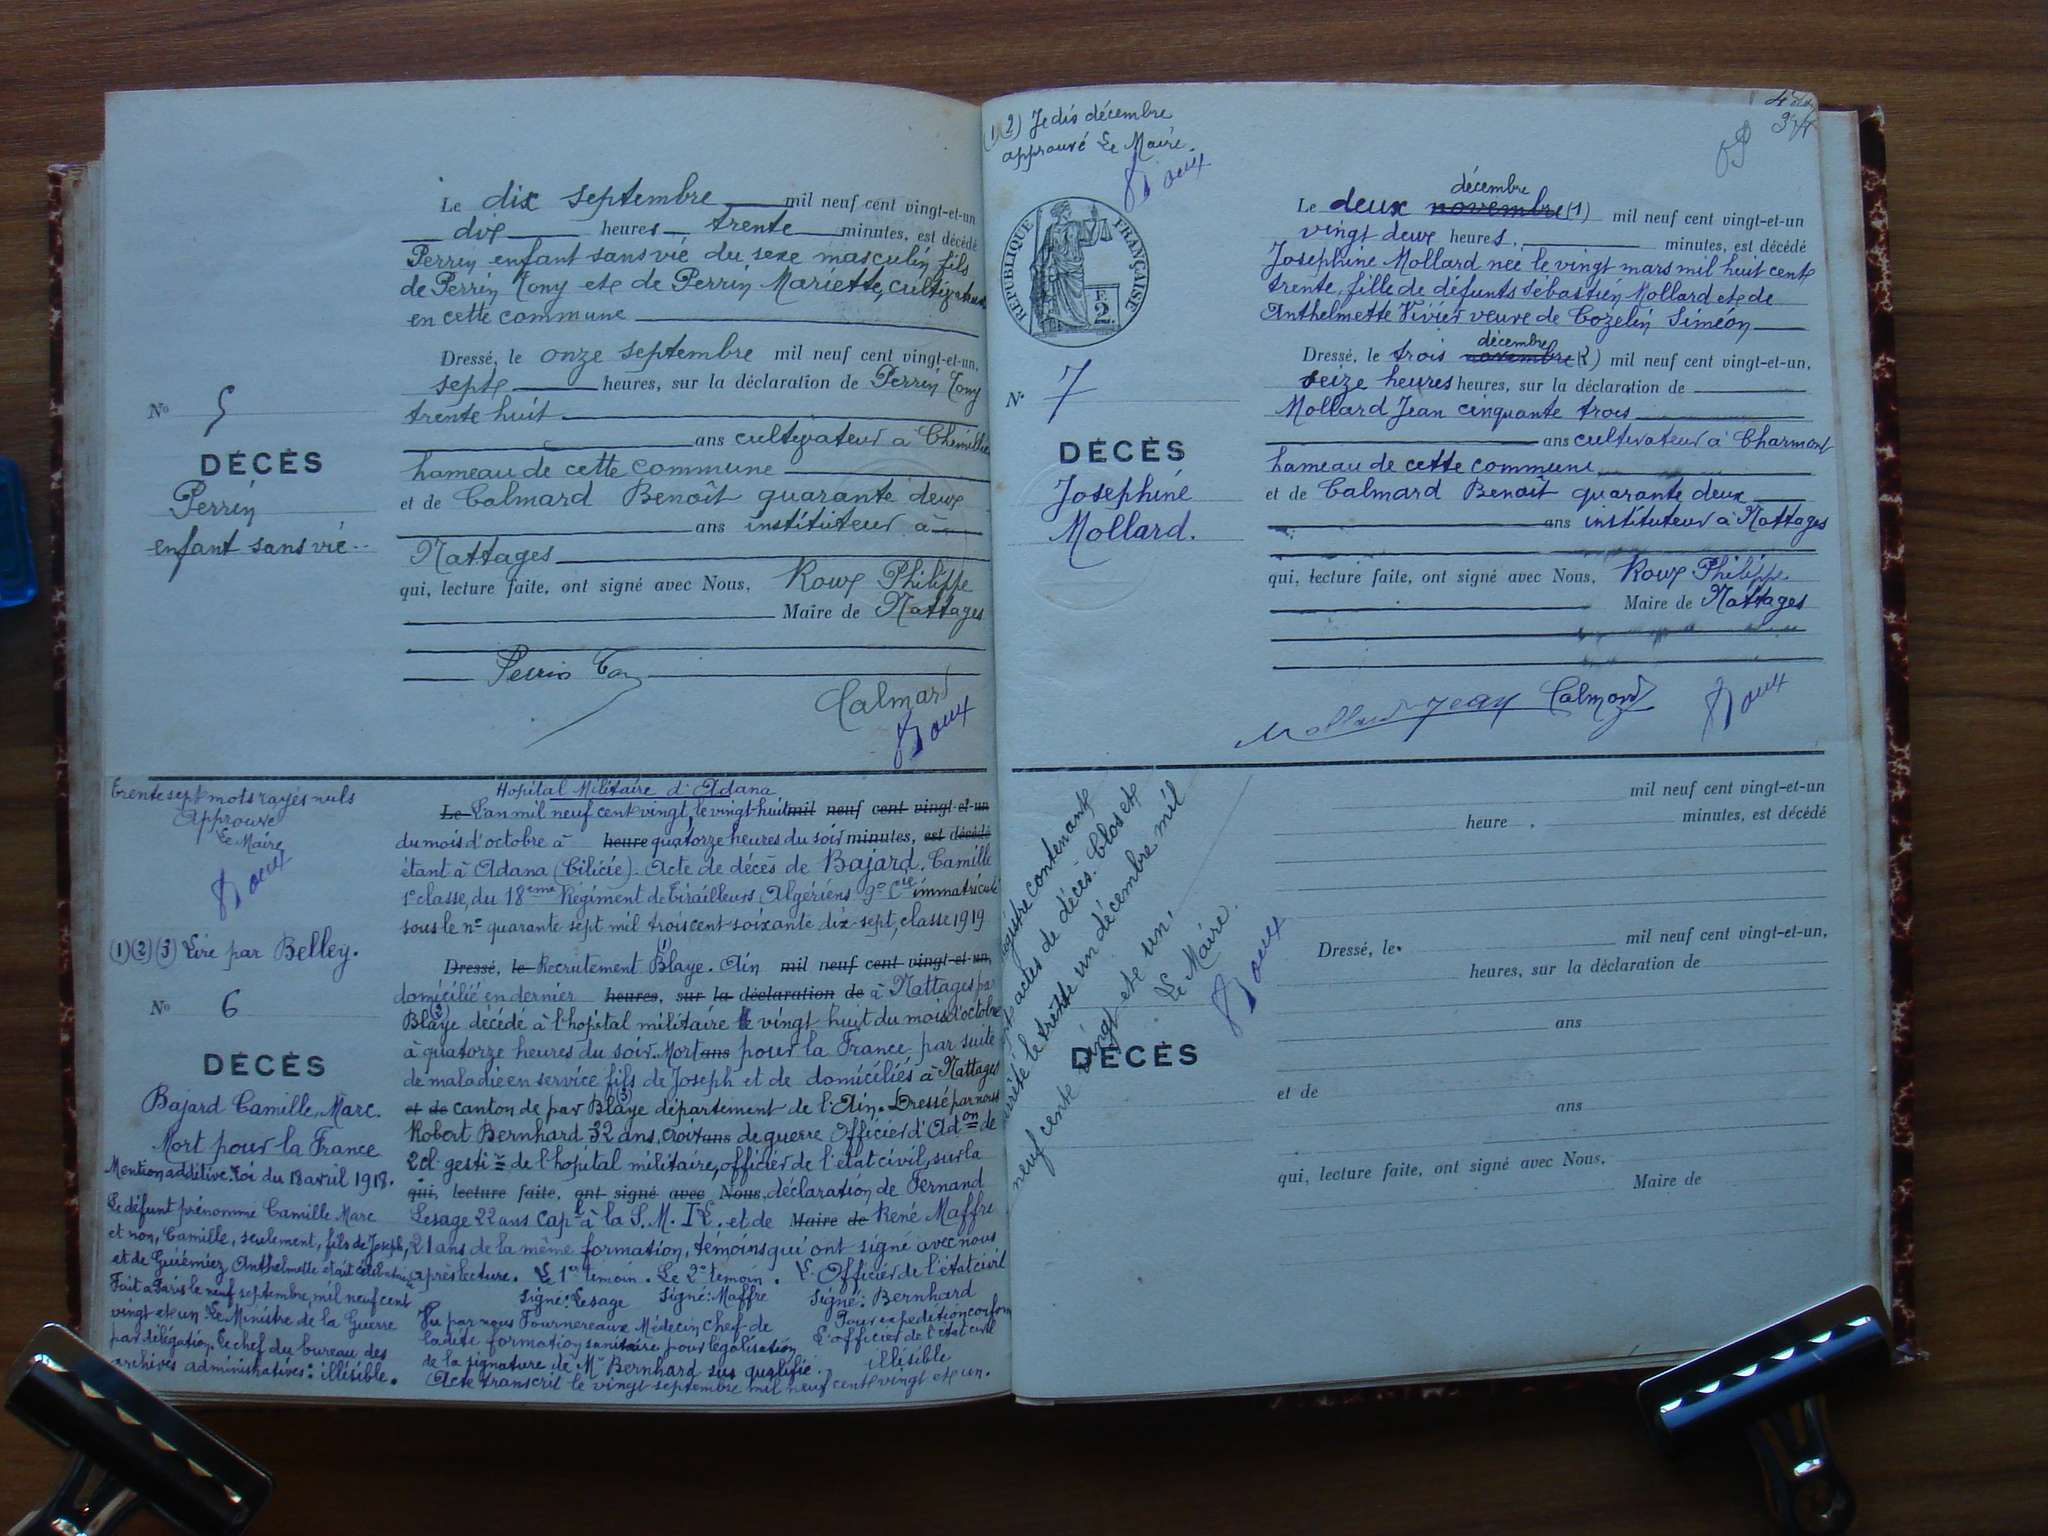 Le dix septembre mil neuf cent vingt-et-un
dix heures trente minutes, est décédé
Perrin enfant sans vie du sexe masculin fils
de Perrin Tony et de Perrin Mariette, cultivateurs
en cette commune
Dressé, le onze septembre mil neuf cent vingt-et-un,
sept heures, sur la déclaration de Perrin Tony
trente huit
ans cultivateur à Chemillieu
hameau de cette commune
et de Calmard Benoît quarante deux
ans instituteur à
Nattages
qui, lecture faite, ont signé avec Nous, Roux Philippe
Maire de Nattages
Perrin Tony
Calmard
Roux
No 5
DÉCÈS
Perrin
enfant sans vie
trente sept mots rayés nuls
Approuvé
Le Maire
Roux
(1)(2)(3) Lire par Belley.
No 6
DÉCÈS
Bajard Camille, Marc.
Mort pour la France
Mention additive. Loi du 18 avril 1918.
Le défunt prénommé Camille Marc
et non, Camille, seulement, fils de Joseph,
et de Guiémiez Anthelmette était célibataire
Fait à Paris le neuf septembre, mil neuf cent
vingt et un. Le Ministre de la Guerre
par délégation. Le chef du bureau des
archives administratives : illisible.
Hopital Militaire d'Adana
Le L'an mil neuf cent vingt, le vingt-huit mil neuf cent vingt-et-un
du mois d'octobre à heure quatorze heures du soir minutes, est décédé
étant à Adana (Cilicie). Acte de décès de Bajard. Camille
1e classe, du 18eme Régiment de Tirailleurs Algériens 9e Cie immatriculé
sous le no quarante sept mil trois cent soixante dix-sept, classe 1919
Dressé, le Recrutement Blaye. (1) Ain mil neuf cent vingt-et-un,
domicilié en dernier heures, sur la déclaration de à Nattages par
Blaye (2) décédé à l'hopital militaire le vingt huit du mois d'octobre
à quatorze heures du soir. Mort ans pour la France par suite
de maladie en service fils de Joseph et de domiciliés à Nattages
et de canton de par Blaye (3) département de l'Ain. Dressé par nous
Robert Bernhard 32 ans, croix ans de guerre Officier d'Adon de
2cl. gestre de l'hopital militaire, officier de l'état civil, sur la
qui, lecture faite, ont signé avec Nous, déclaration de Fernand
Lesage 22 ans capl à la S. M. I L. et de Maire de René Maffre
21 ans de la même formation, témoins qui ont signé avec nous
après lecture. Le 1er témoin. Le 2e témoin. L'Officier de l'état civil
signé : Lesage signé : Maffre signé : Bernhard
Vu par nous Fournereaux Médecin chef de
la dite formation sanitaire pour légalisation
de la signature de Mr Bernhard sus qualifié.
Pour expédition conforme
L'officier de l'état civil
illisible
Acte transcrit le vingt septembre mil neuf cent vingt et un.
(1)(2) Je dis décembre
approuvé Le Maire.
Roux
RÉPUBLIQUE FRANÇAISE
2
No 7
DÉCÈS
Josephine
Mollard.
décembre
Le deux novembre (1) mil neuf cent vingt-et-un
vingt deux heures, minutes, est décédé
Josephine Mollard née le vingt mars mil huit cent
trente, fille de défunts Sébastien Mollard et de
Anthelmette Vivier veuve de Cozelin Siméon
décembre
Dressé, le trois novembre (2) mil neuf cent vingt-et-un,
seize heures heures, sur la déclaration de
Mollard Jean cinquante trois
ans cultivateur à Charmont
hameau de cette commune
et de Calmard Benoît quarante deux
ans instituteur à Nattages
qui, lecture faite, ont signé avec Nous, Roux Philippe
Maire de Nattages
Mollard Jean Calmard Roux
registre contenant
sept actes de décès. Clos et
arrêté le trente un décembre mil
neuf cent vingt et un,
Le Maire.
Roux
DÉCÈS
mil neuf cent vingt-et-un
heure , minutes, est décédé
Dressé, le mil neuf cent vingt-et-un,
heures, sur la déclaration de
ans
et de
ans
qui, lecture faite, ont signé avec Nous,
Maire de